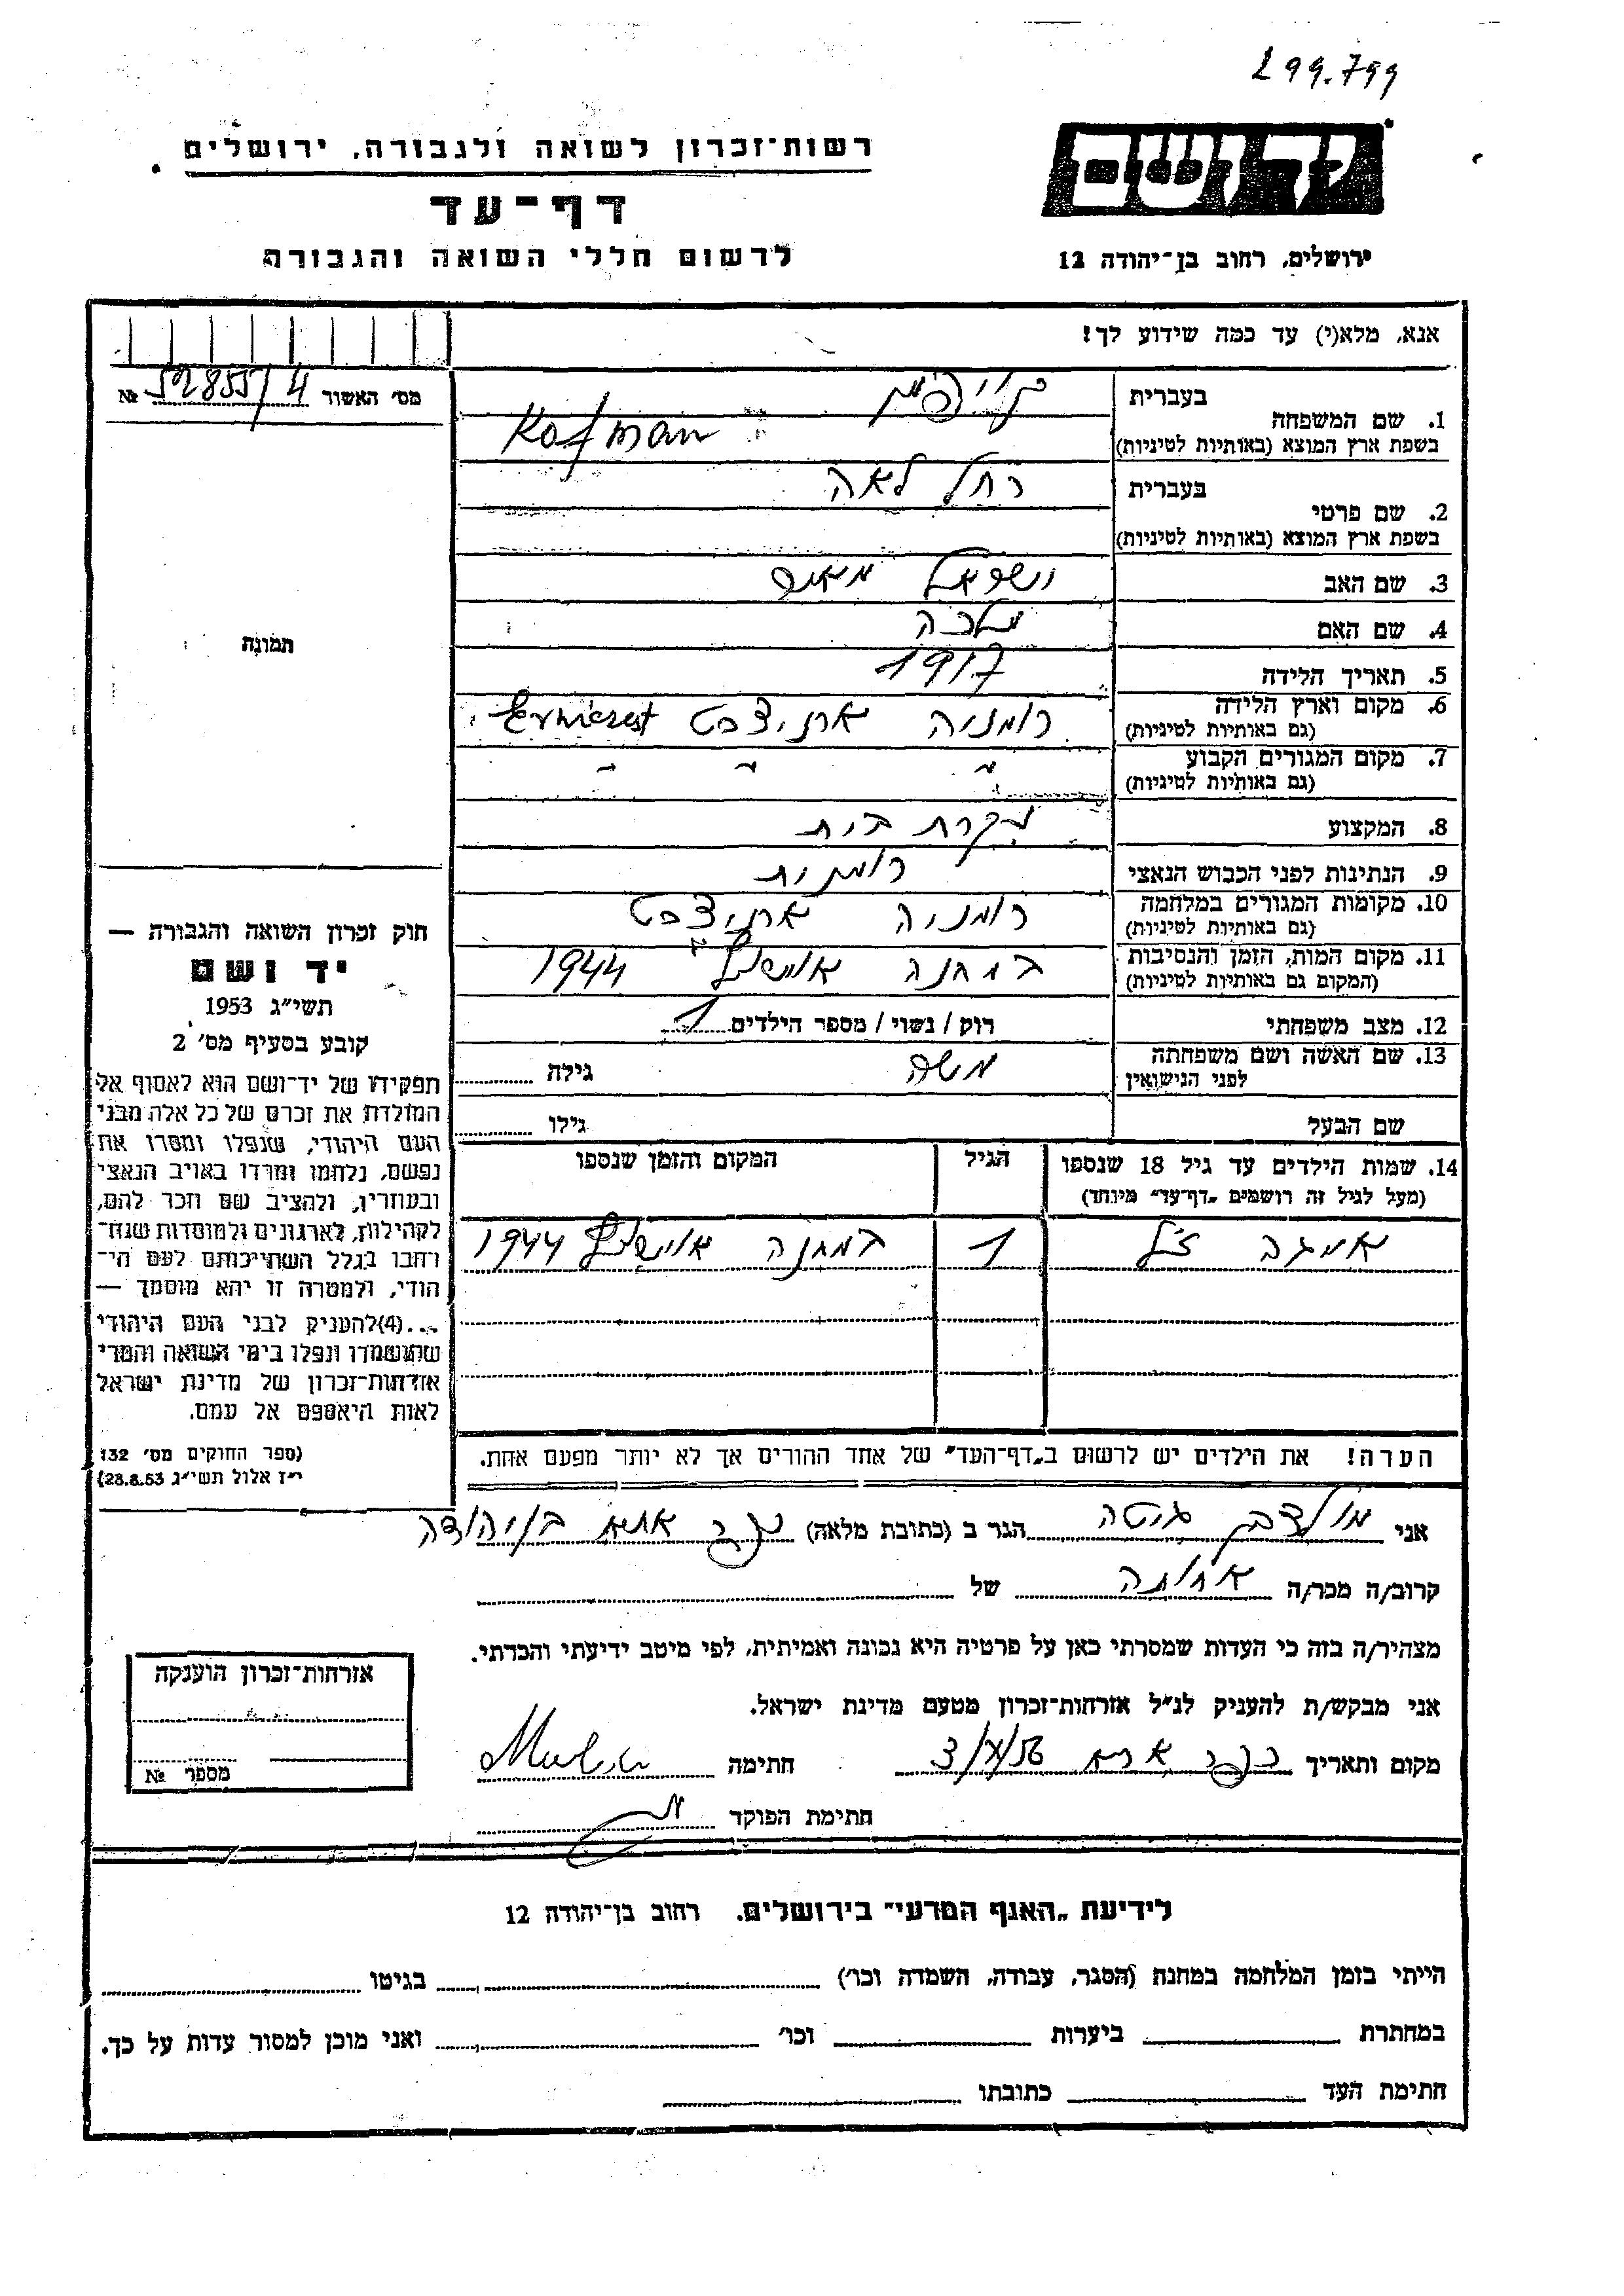 299.799
רשות-זכרון לשואה ולגבורה, ירושלים
יד ושם
דף-עד
לרשום חללי השואה והגבורה
ירושלים, רחוב בן-יהודה 12
אנא, מלא(י) עד כמה שידוע לך!
מס' האשור № 52855/4
1. שם המשפחה בעברית
בשפת ארץ המוצא (באותיות לטיניות) Kofman
2. שם פרטי בעברית רחל לאה
בשפת ארץ המוצא (באותיות לטיניות)
3. שם האב ישראל מאיר
4. שם האם מלכה
5. תאריך הלידה 1917
6. מקום וארץ הלידה רומניה
(גם באותיות לטיניות)
7. מקום המגורים הקבוע " " "
(גם באותיות לטיניות)
8. המקצוע עקרת בית
9. הנתינות לפני הכבוש הנאצי רומנית
10. מקומות המגורים במלחמה רומניה
(גם באותיות לטיניות)
11. מקום המות, הזמן והנסיבות במחנה אוישויץ 1944
(המקום גם באותיות לטיניות)
12. מצב משפחתי רוק / נשוי / מספר הילדים 1
13. שם האשה ושם משפחתה
לפני הנישואין משה גילה
שם הבעל גילו
14. שמות הילדים עד גיל 18 שנספו הגיל המקום והזמן שנספו
(מעל לגיל זה רושמים „דף-עד" מיוחד)
ז"ל 1 במחנה אוישויץ 1944
הערה! את הילדים יש לרשום ב„דף-העד" של אחד ההורים אך לא יותר מפעם אחת.
תמונה
חוק זכרון השואה והגבורה —
יד ושם
תשי"ג 1953
קובע בסעיף מס' 2
תפקידו של יד-ושם הוא לאסוף אל
המולדת את זכרם של כל אלה מבני
העם היהודי, שנפלו ומסרו את
נפשם, נלחמו ומרדו באויב הנאצי
ובעוזריו, ולהציב שם וזכר להם,
לקהילות, לארגונים ולמוסדות שנח-
רבו בגלל השתייכותם לעם הי-
הודי, ולמטרה זו יהא מוסמך —
...(4)להעניק לבני העם היהודי
שהושמדו ונפלו בימי השואה והמרי
אזרחות-זכרון של מדינת ישראל
לאות היאספם אל עמם.
(ספר החוקים מס' 132
י"ז אלול תשי"ג 28.8.53)
אני גיטה הגר ב (כתובת מלאה) כפר אתא בן יהודה
קרוב/ה מכר/ה אחותה של
מצהיר/ה בזה כי העדות שמסרתי כאן על פרטיה היא נכונה ואמיתית, לפי מיטב ידיעתי והכרתי.
אני מבקש/ת להעניק לנ"ל אזרחות-זכרון מטעם מדינת ישראל.
מקום ותאריך כפר אתא 3/X/56 חתימה
חתימת הפוקד
אזרחות-זכרון הוענקה
מספר №
לידיעת „האגף המדעי" בירושלים, רחוב בן-יהודה 12
הייתי בזמן המלחמה במחנה (הסגר, עבודה, השמדה וכו') בגיטו
במחתרת ביערות וכו' ואני מוכן למסור עדות על כך.
חתימת העד כתובתו